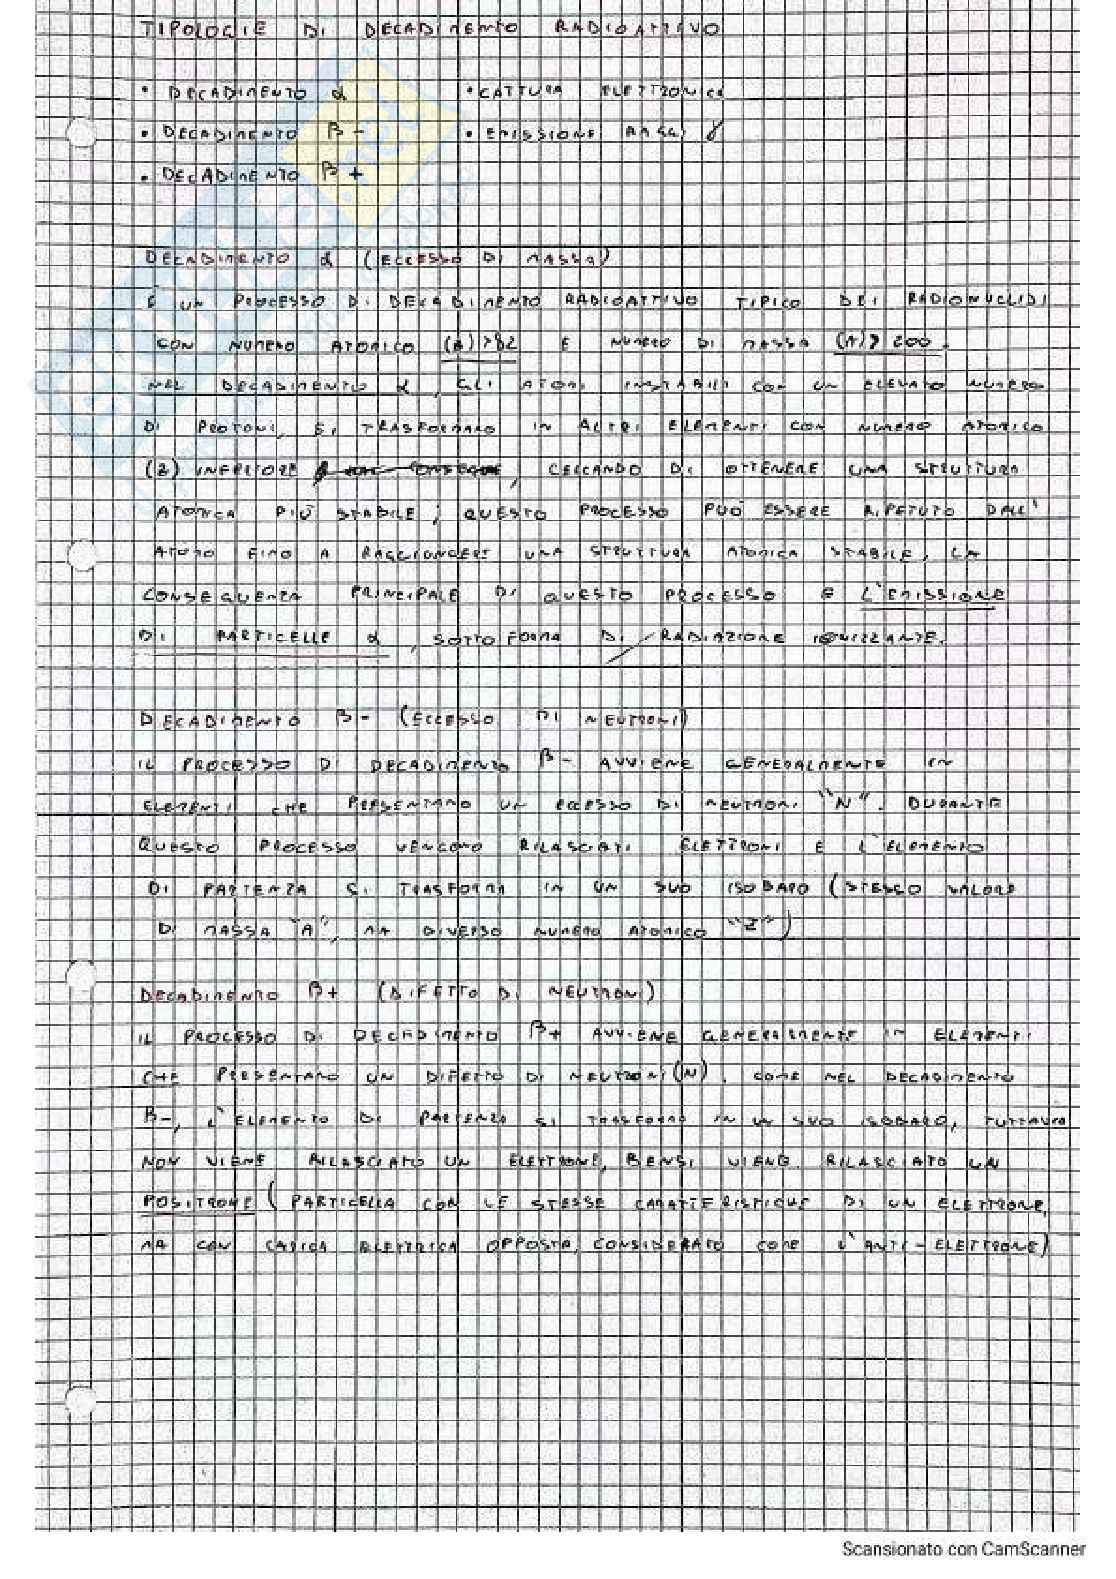 TIPOLOGIE DI DECADIMENTO RADIOATTIVO
• DECADIMENTO α • CATTURA ELETTRONICA
• DECADIMENTO β- • EMISSIONE RAGGI γ
• DECADIMENTO β+
DECADIMENTO α (ECCESSO DI MASSA)
È UN PROCESSO DI DECADIMENTO RADIOATTIVO TIPICO DEI RADIONUCLIDI
CON NUMERO ATOMICO (Z)>82 E NUMERO DI MASSA (A)>200.
NEL DECADIMENTO α, GLI ATOMI INSTABILI CON UN ELEVATO NUMERO
DI PROTONI, SI TRASFORMANO IN ALTRI ELEMENTI CON NUMERO ATOMICO
(Z) INFERIORE, CERCANDO DI OTTENERE UNA STRUTTURA
ATOMICA PIÙ STABILE; QUESTO PROCESSO PUÒ ESSERE RIPETUTO DALL'
ATOMO FINO A RAGGIUNGERE UNA STRUTTURA ATOMICA STABILE, LA
CONSEGUENZA PRINCIPALE DI QUESTO PROCESSO È L'EMISSIONE
DI PARTICELLE α, SOTTO FORMA DI RADIAZIONE IONIZZANTE.
DECADIMENTO β- (ECCESSO DI NEUTRONI)
IL PROCESSO DI DECADIMENTO β- AVVIENE GENERALMENTE IN
ELEMENTI CHE PRESENTANO UN ECCESSO DI NEUTRONI "N". DURANTE
QUESTO PROCESSO VENGONO RILASCIATI ELETTRONI E L'ELEMENTO
DI PARTENZA SI TRASFORMA IN UN SUO ISOBARO (STESSO VALORE
DI MASSA "A", MA DIVERSO NUMERO ATOMICO "Z")
DECADIMENTO β+ (DIFETTO DI NEUTRONI)
IL PROCESSO DI DECADIMENTO β+ AVVIENE GENERALMENTE IN ELEMENTI
CHE PRESENTANO UN DIFETTO DI NEUTRONI (N). COME NEL DECADIMENTO
β-, L'ELEMENTO DI PARTENZA SI TRASFORMA IN UN SUO ISOBARO, TUTTAVIA
NON VIENE RILASCIATO UN ELETTRONE, BENSI VIENE RILASCIATO UN
POSITRONE (PARTICELLA CON LE STESSE CARATTERISTICHE DI UN ELETTRONE,
MA CON CARICA ELETTRICA OPPOSTA, CONSIDERATO COME L'ANTI-ELETTRONE)
Scansionato con CamScanner